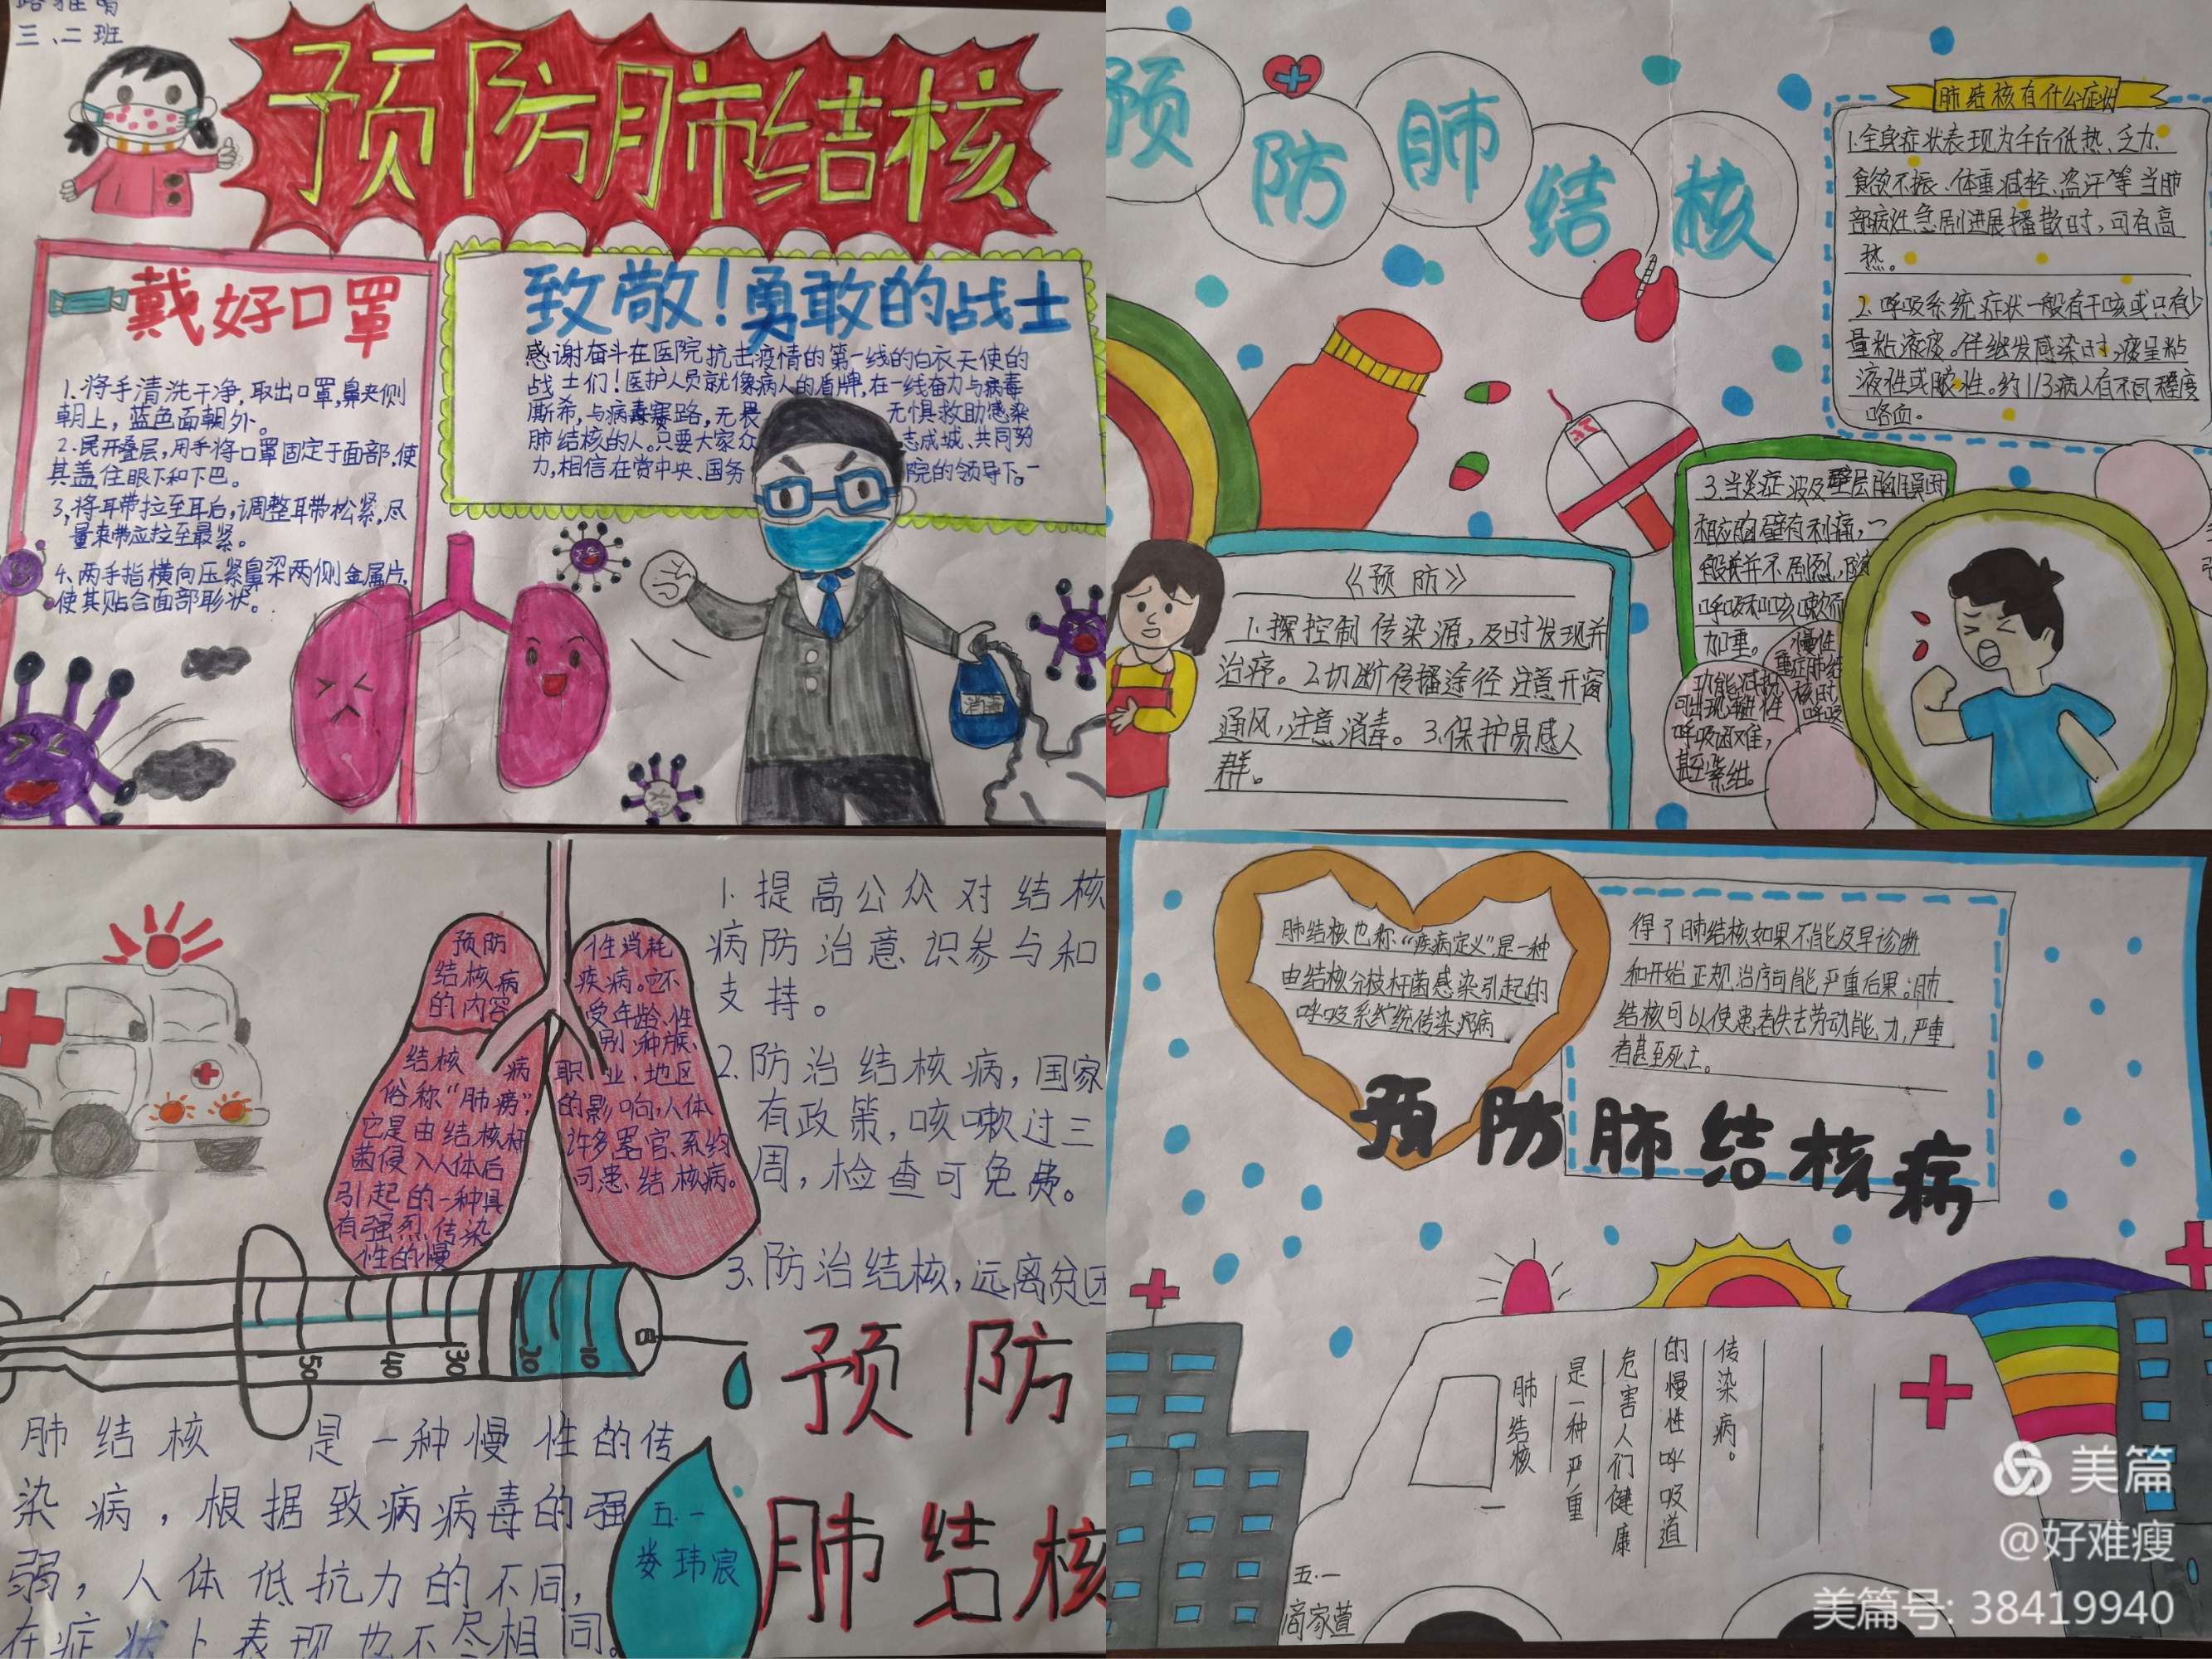 三、二班
预防肺结核
戴好口罩
1.将手清洗干净,取出口罩,鼻夹侧
朝上,蓝色面朝外。
2.民开叠层,用手将口罩固定于面部,使
其盖住眼下和下巴。
3,将耳带拉至耳后,调整耳带松紧,尽
量束带应拉至最紧。
4、两手指横向压紧鼻梁两侧金属片,
使其贴合面部形状。
致敬!勇敢的战士
感谢奋斗在医院抗击疫情的第一线的白衣天使的
战士们!医护人员就像病人的盾牌,在一线奋力与病毒
厮希,与病毒赛路,无畏 无惧救助感染
肺结核的人。只要大家众 志成城、共同努
力,相信在党中央、国务 院的领导下。
消毒
预防肺结核
肺结核有什么症状
1.全身症状表现为午后低热、乏力、
食欲不振、体重减轻、盗汗等当肺
部病灶急剧进展播散时,可有高
热。
2.呼吸系统症状一般有干咳或只有少
量粘液痰。伴继发感染时,痰呈粘
液性或脓性。约1/3病人有不同程度
咯血。
3.当炎症波及壁层胸膜因
相应胸壁有刺痛,一
般并不剧烈,随
呼吸和咳嗽而
加重。
慢性
重症肺结
核时,
呼吸
功能减损
可出现渐进性
呼吸困难,
甚至紫绀。
《预防》
1.探控制传染源,及时发现并
治疗。2.切断传播途径 注意开窗
通风,注意消毒。3.保护易感人
群。
预防
结核病
的内容
结核 病
俗称“肺痨”,
它是由结核杆
菌侵入人体后
引起的一种具
有强烈传染
性的慢
性消耗
疾病。它不
受年龄、性
别、种族、
职业、地区
的影响,人体
许多器官、系统
可患、结核病。
1.提高公众对结核
病防治意识参与和
支持。
2.防治结核病,国家
有政策,咳嗽过三
周,检查可免费。
3.防治结核,远离贫困
50 40 30 20 10
预防
肺结核
肺结核 是一种慢性的传
染病,根据致病病毒的强
弱,人体低抗力的不同,
在症状上表现也不尽相同。
五.一
娄玮宸
肺结核也称“疾病定义”,是一种
由结核分枝杆菌感染引起的
呼吸系统传染疾病
得了肺结核如果不能及早诊断
和开始正规治疗可能严重后果:肺
结核可以使患者失去劳动能力,严重
者甚至死亡。
预防肺结核病
肺结核
是一种严重
危害人们健康
的慢性呼吸道
传染病。
五.一
商家萱
美篇
@好难瘦
美篇号: 38419940